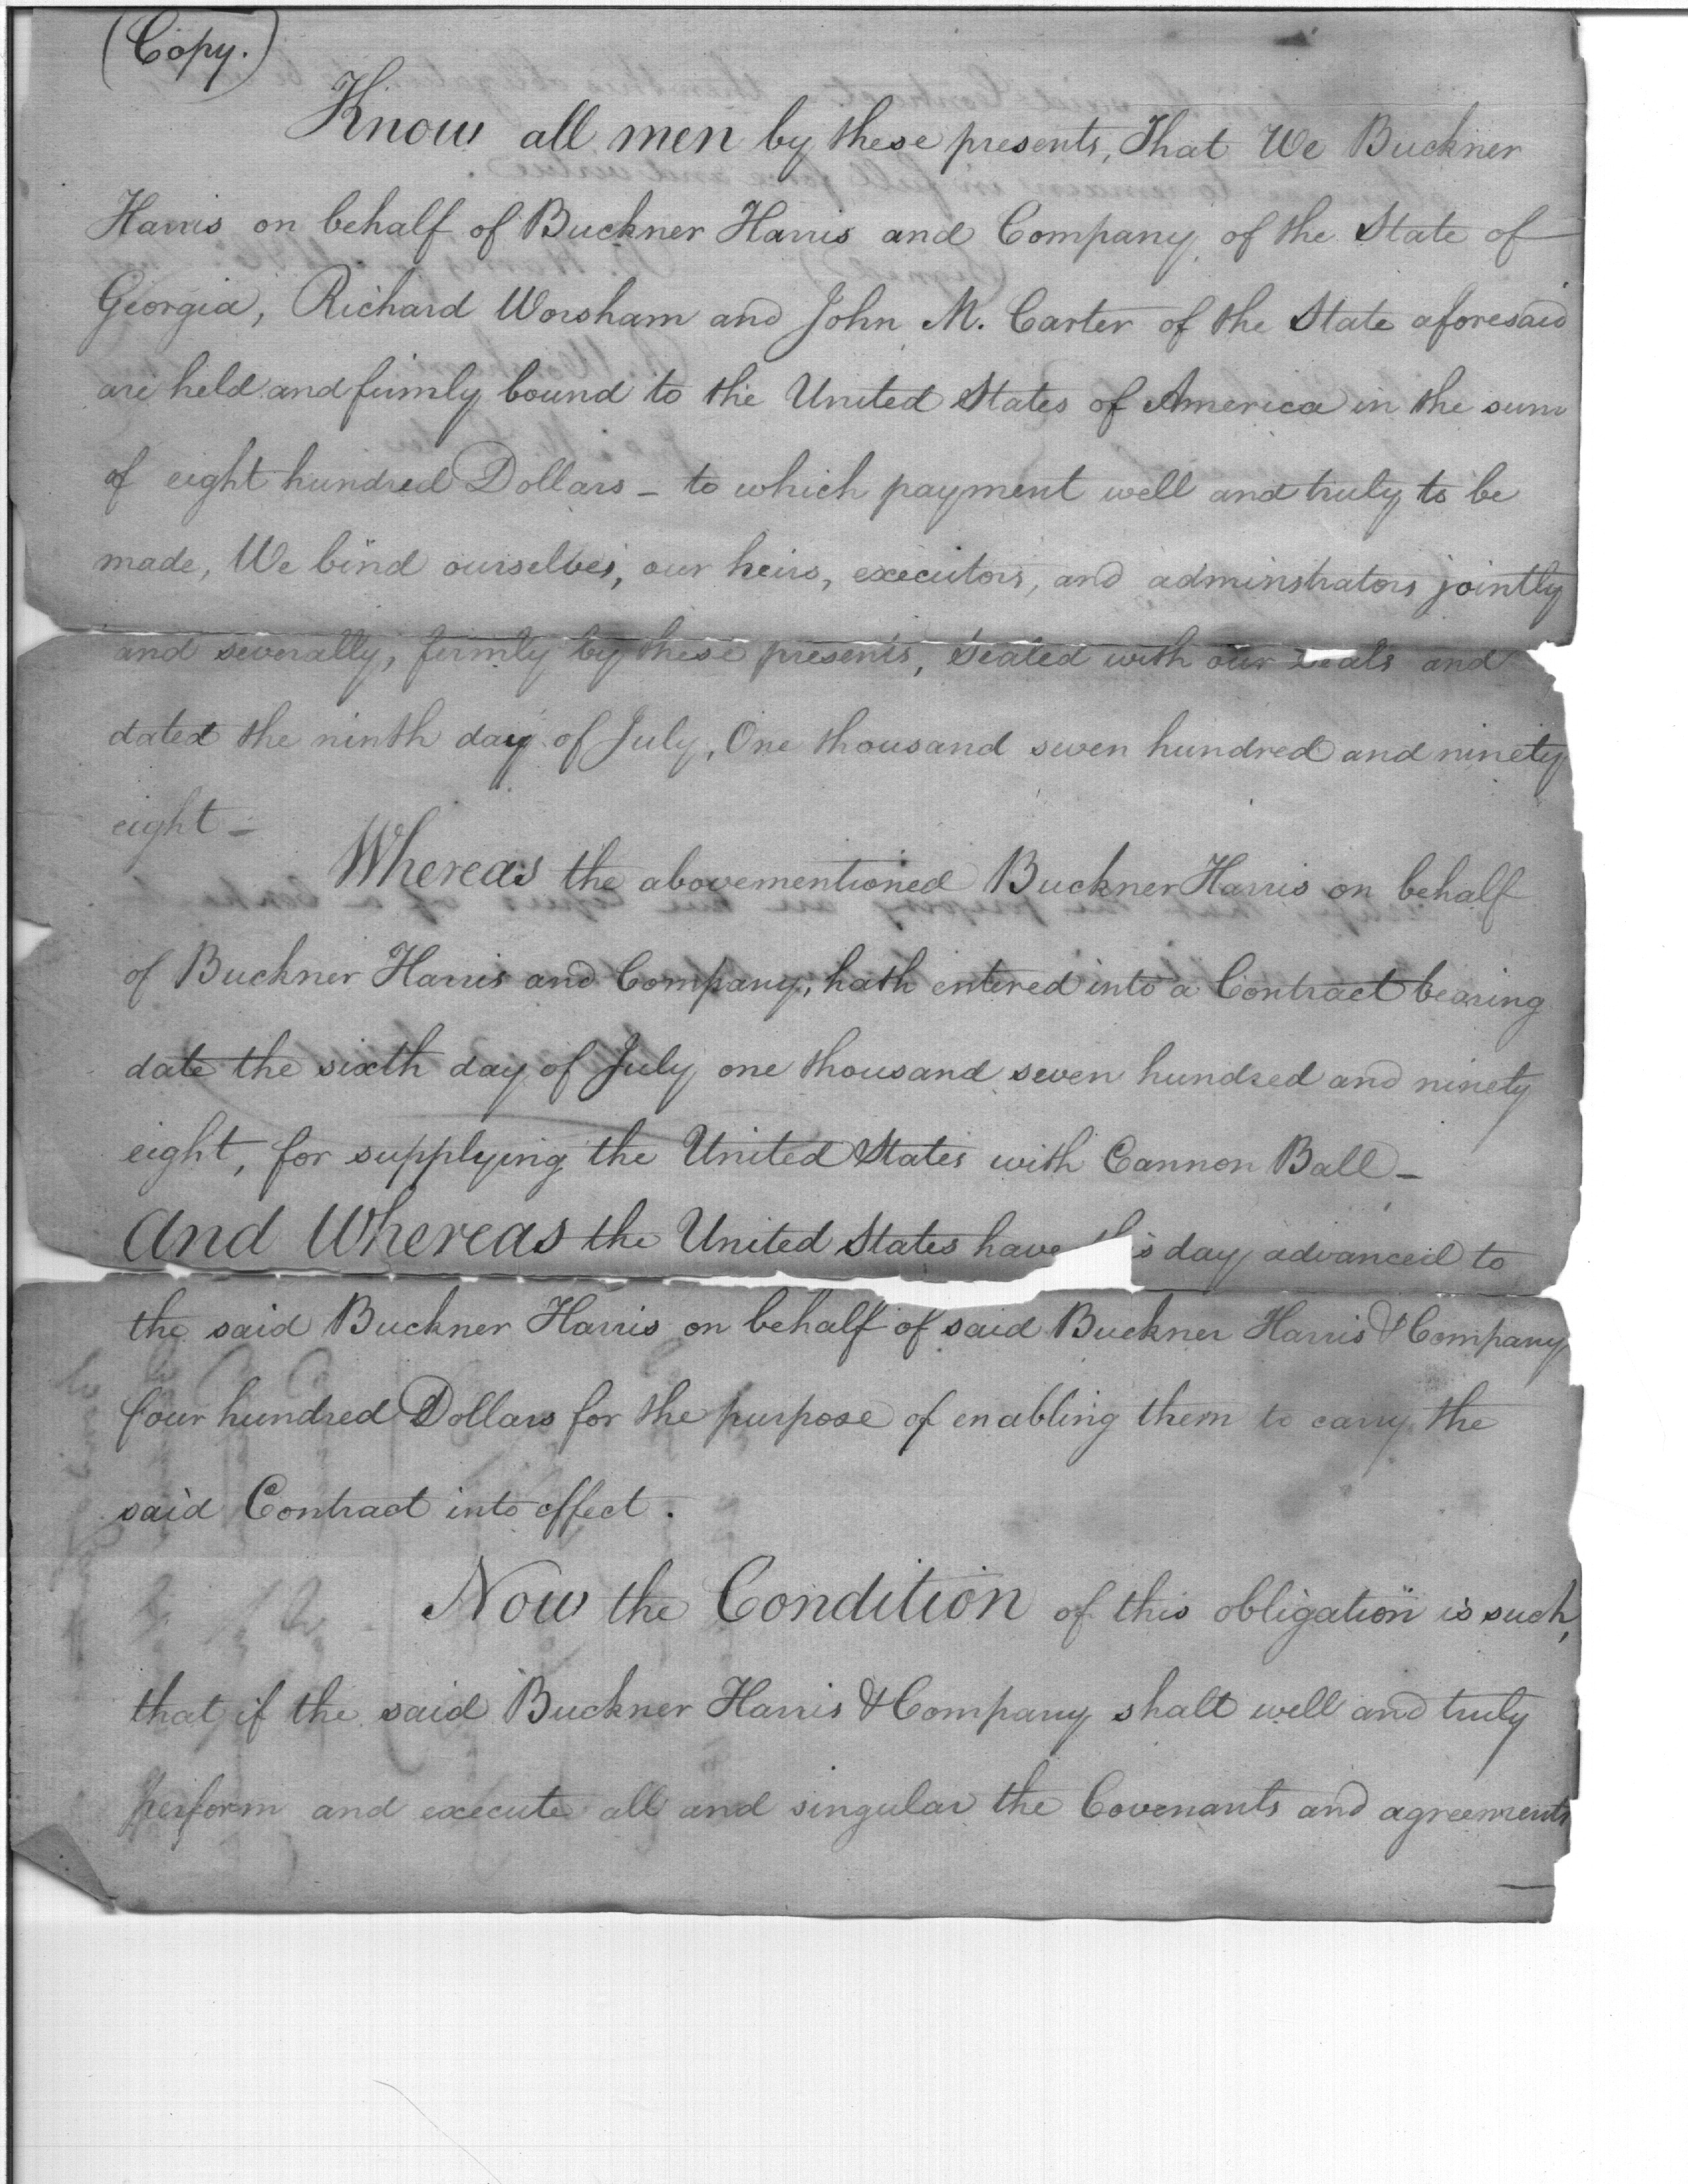 (Copy.)
Know all men by these presents, That We Buckner
Harris on behalf of Buckner Harris and Company, of the State of
Georgia, Richard Worsham and John M. Carter of the State aforesaid
are held and firmly bound to the United States of America in the sum
of eight hundred Dollars – to which payment well and truly to be
made, We bind ourselves, our heirs, executors, and adminstrators jointly
and severally, firmly by these presents, Sealed with our Seals and
dated the ninth day of July, One thousand seven hundred and ninety
eight –
Whereas the abovementioned Buckner Harris on behalf
of Buckner Harris and Company, hath entered into a Contract bearing
date the sixth day of July one thousand seven hundred and ninety
eight, for supplying the United States with Cannon Ball –
And Whereas the United States have this day advanced to
the said Buckner Harris on behalf of said Buckner Harris & Company
four hundred Dollars for the purpose of enabling them to carry the
said Contract into effect.
Now the Condition of this obligation is such,
that if the said Buckner Harris & Company shall well and truly
perform and execute all and singular the Covenants and agreements